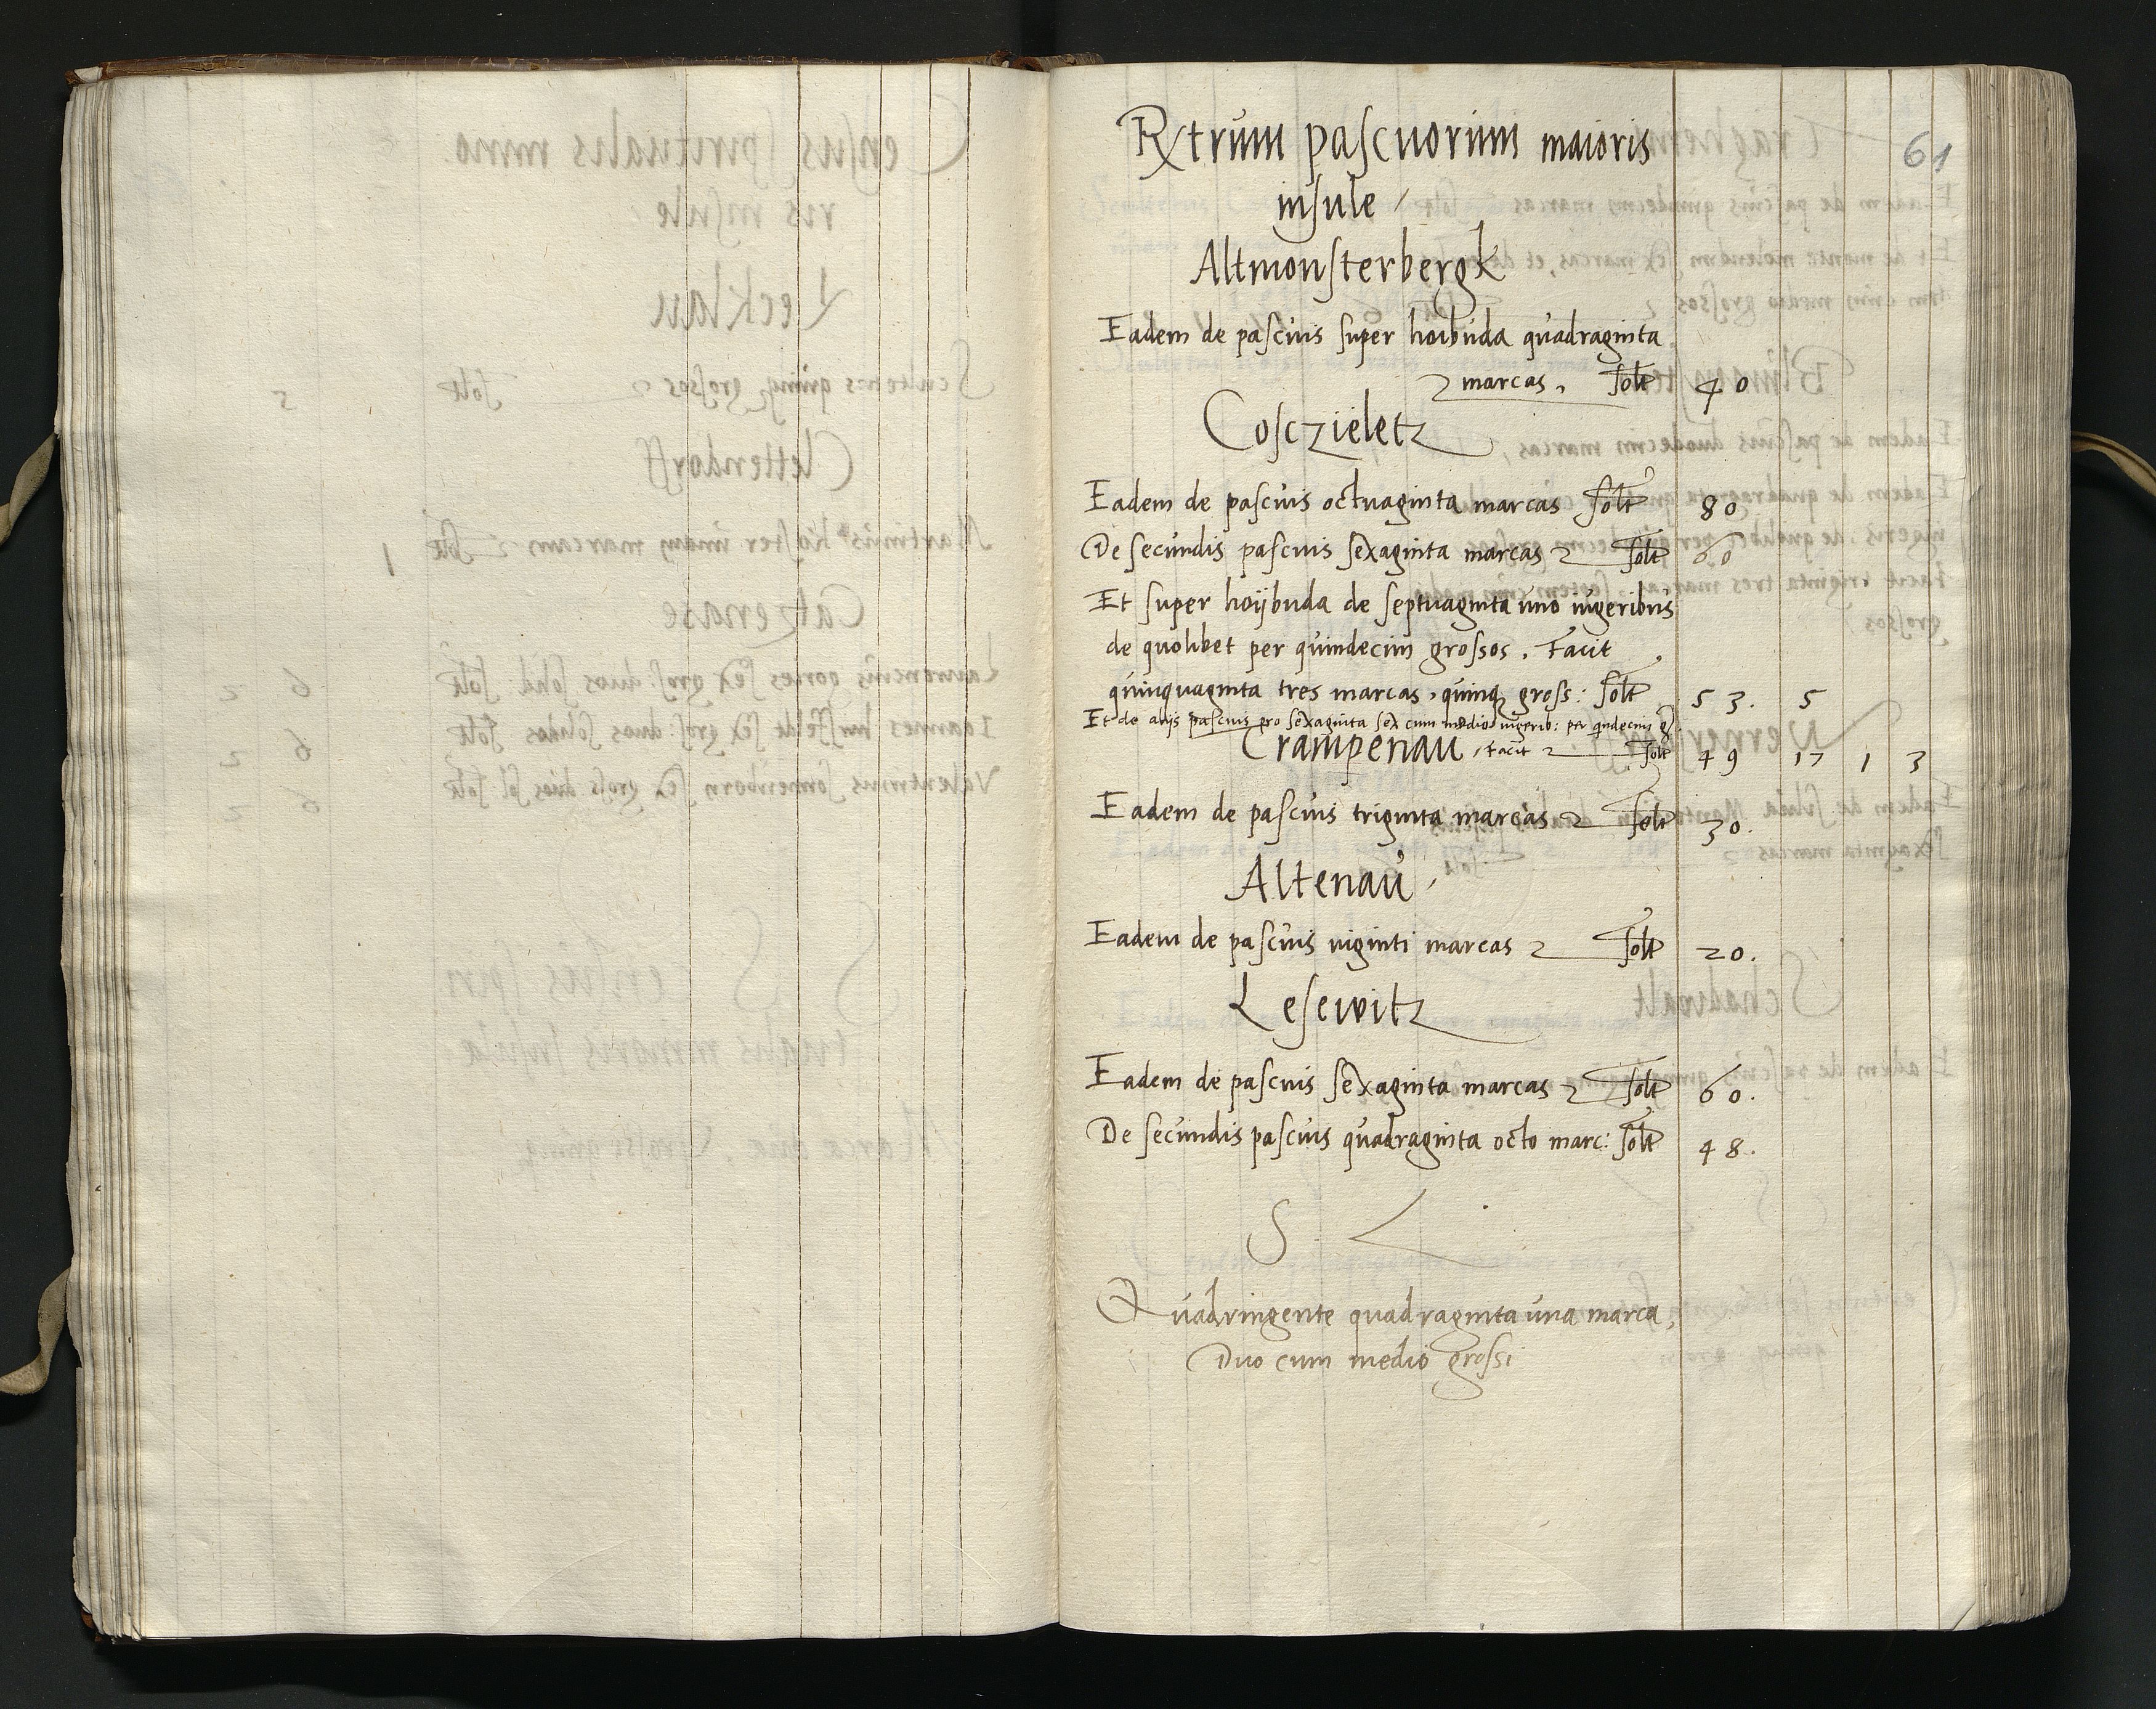 Rxtrum pascuorum maioris
61
insule
Altmonsterbergk
Eadem de pascuis super hoibuda quadraginta
marcas. solt 40
Cosczieletz
Eadem de pascuis octuaginta marcas solt 80
De secundis pascuis sexaginta marcas solt 60
Et super hoÿbuda de septuaginta uno iugeribus
de quolibet per quindecim grossos. Facit
quinquaginta tres marcas, quinq gross: solt 53. 5
Et de alijs pascuis pro sexaginta sex cum medio iugerib: per quindecim g
Crampenau, facit solt 49 17 1 3
Eadem de pascuis triginta marcas solt 30.
Altenau
Eadem de pascuis viginti marcas solt 20.
Lesewitz
Eadem de pascuis sexaginta marcas solt 60.
De secundis pascuis quadraginta octo marc: solt 48.
S L
Quadringente quadraginta una marca,
Duo cum medio grossi